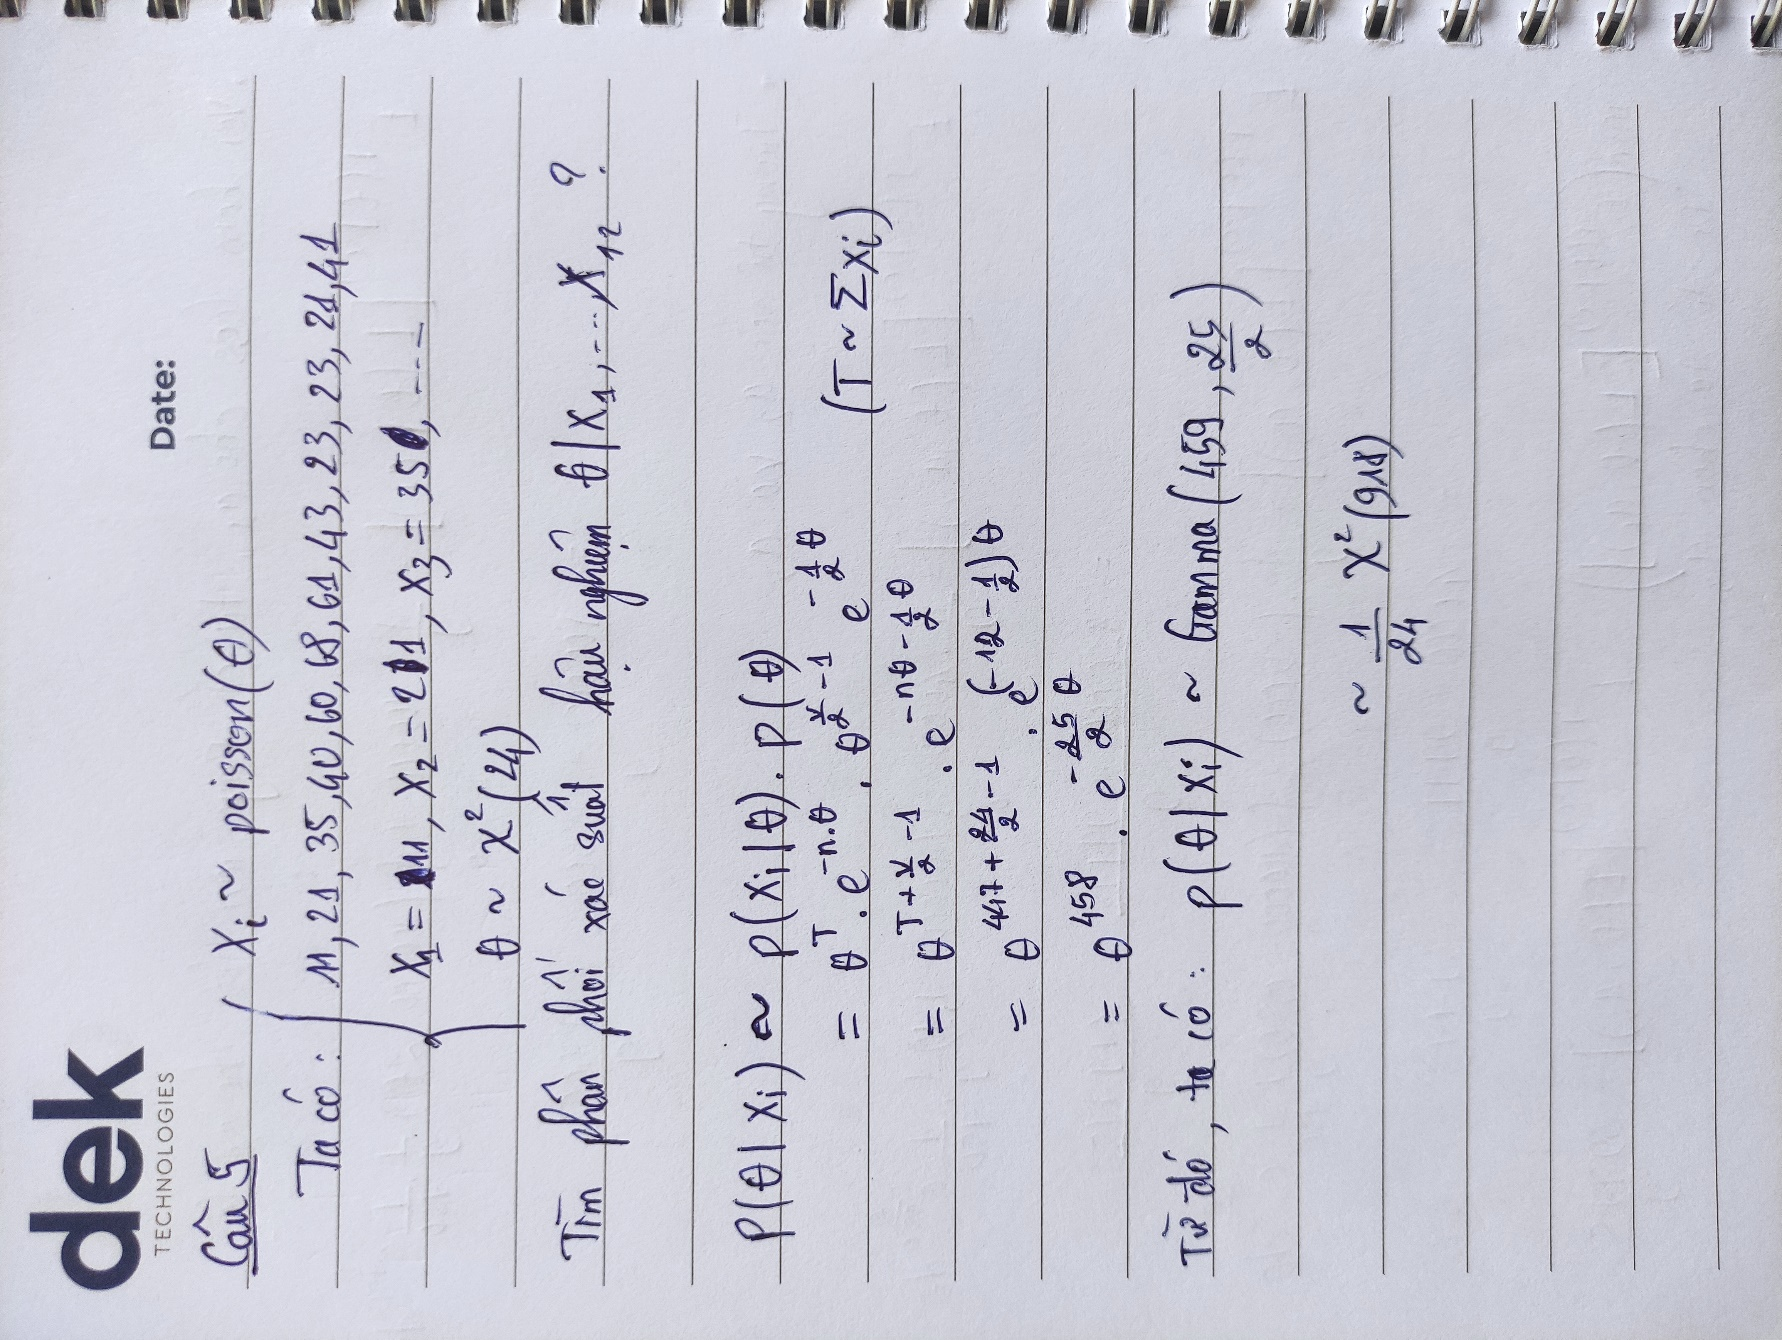 dek
TECHNOLOGIES
Date:
Câu 5
Xi ~ poisson(θ)
Ta có: 11, 21, 35, 40, 60, 68, 61, 43, 23, 23, 23, 21, 41
X1 = 11, X2 = 21, X3 = 35, ...
θ ~ χ²(24)
Tìm phân phối xác suất hậu nghiệm θ|X1, ..., X12 ?
P(θ|Xi) ~ P(Xi|θ). P(θ)
= θ^T . e^(-n.θ) . θ^(v/2 - 1) e^(-1/2 θ) (T ~ ΣXi)
= θ^(T + v/2 - 1) . e^(-nθ - 1/2 θ)
= θ^(447 + 24/2 - 1) . e^((-12 - 1/2)θ)
= θ^458 . e^(-25/2 θ)
Từ đó, ta có: P(θ|Xi) ~ Gamma(459, 25/2)
~ 1/24 χ²(918)